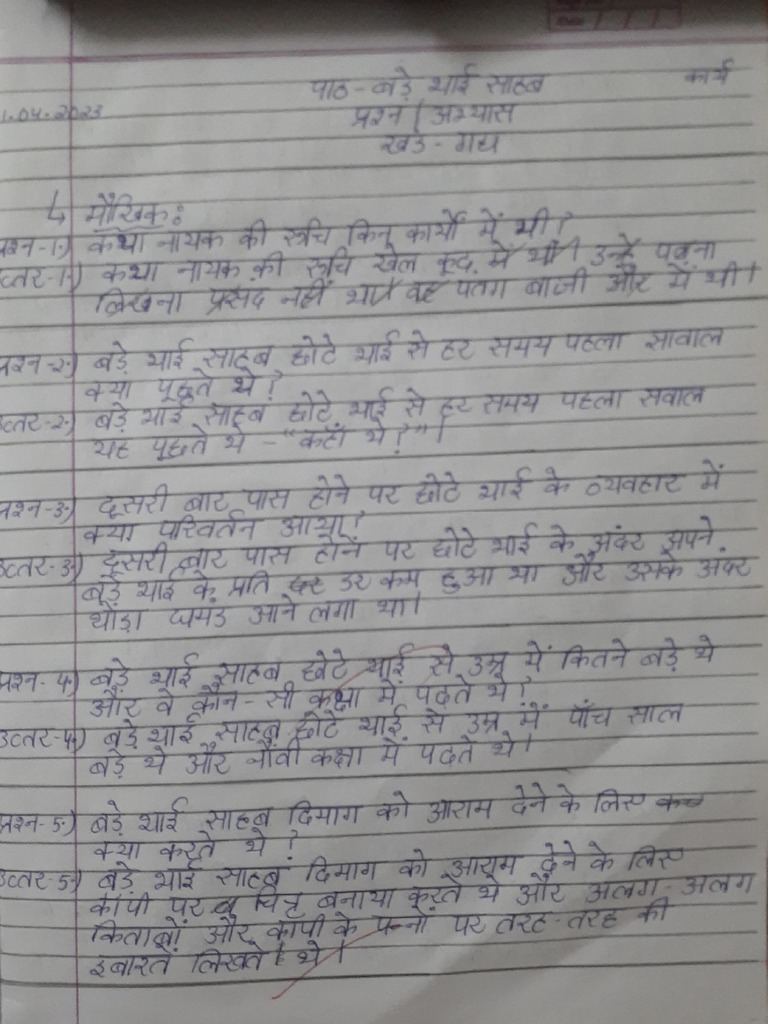 पाठ - बड़े भाई साहब कार्य
1.04.2023 प्रश्न / अभ्यास
खंड - गद्य
↳ मौखिक:
प्रश्न-1.) कथा नायक की रूचि किन कार्यों में थी?
उत्तर-1.) कथा नायक की रूचि खेल कूद में थी। उन्हें पढ़ना
लिखना प्रसंद नहीं था। वह पतंग बाजी और में थी।
प्रश्न-2.) बड़े भाई साहब छोटे भाई से हर समय पहला सावाल
क्या पूछते थे?
उत्तर-2.) बड़े भाई साहब छोटे भाई से हर समय पहला सवाल
यह पूछते थे - "कहाँ थे?"।
प्रश्न-3.) दूसरी बार पास होने पर छोटे भाई के व्यवहार में
क्या परिवर्तन आया?
उत्तर-3.) दूसरी बार पास होने पर छोटे भाई के अंदर अपने
बड़े भाई के प्रति डर कम हुआ था और उसके अंदर
थोड़ा घमंड आने लगा था।
प्रश्न-4.) बड़े भाई साहब छोटे भाई से उम्र में कितने बड़े थे
और वे कौन-सी कक्षा में पढ़ते थे?
उत्तर-4.) बड़े भाई साहब छोटे भाई से उम्र में पाँच साल
बड़े थे और नौंवी कक्षा में पढ़ते थे।
प्रश्न-5.) बड़े भाई साहब दिमाग को आराम देने के लिए
क्या करते थे?
उत्तर-5.) बड़े भाई साहब दिमाग को आराम देने के लिए
कॉपी पर चित्र बनाया करते थे और अलग-अलग
किताबों और कॉपी के पन्नों पर तरह-तरह की
इबारतें लिखते थे।